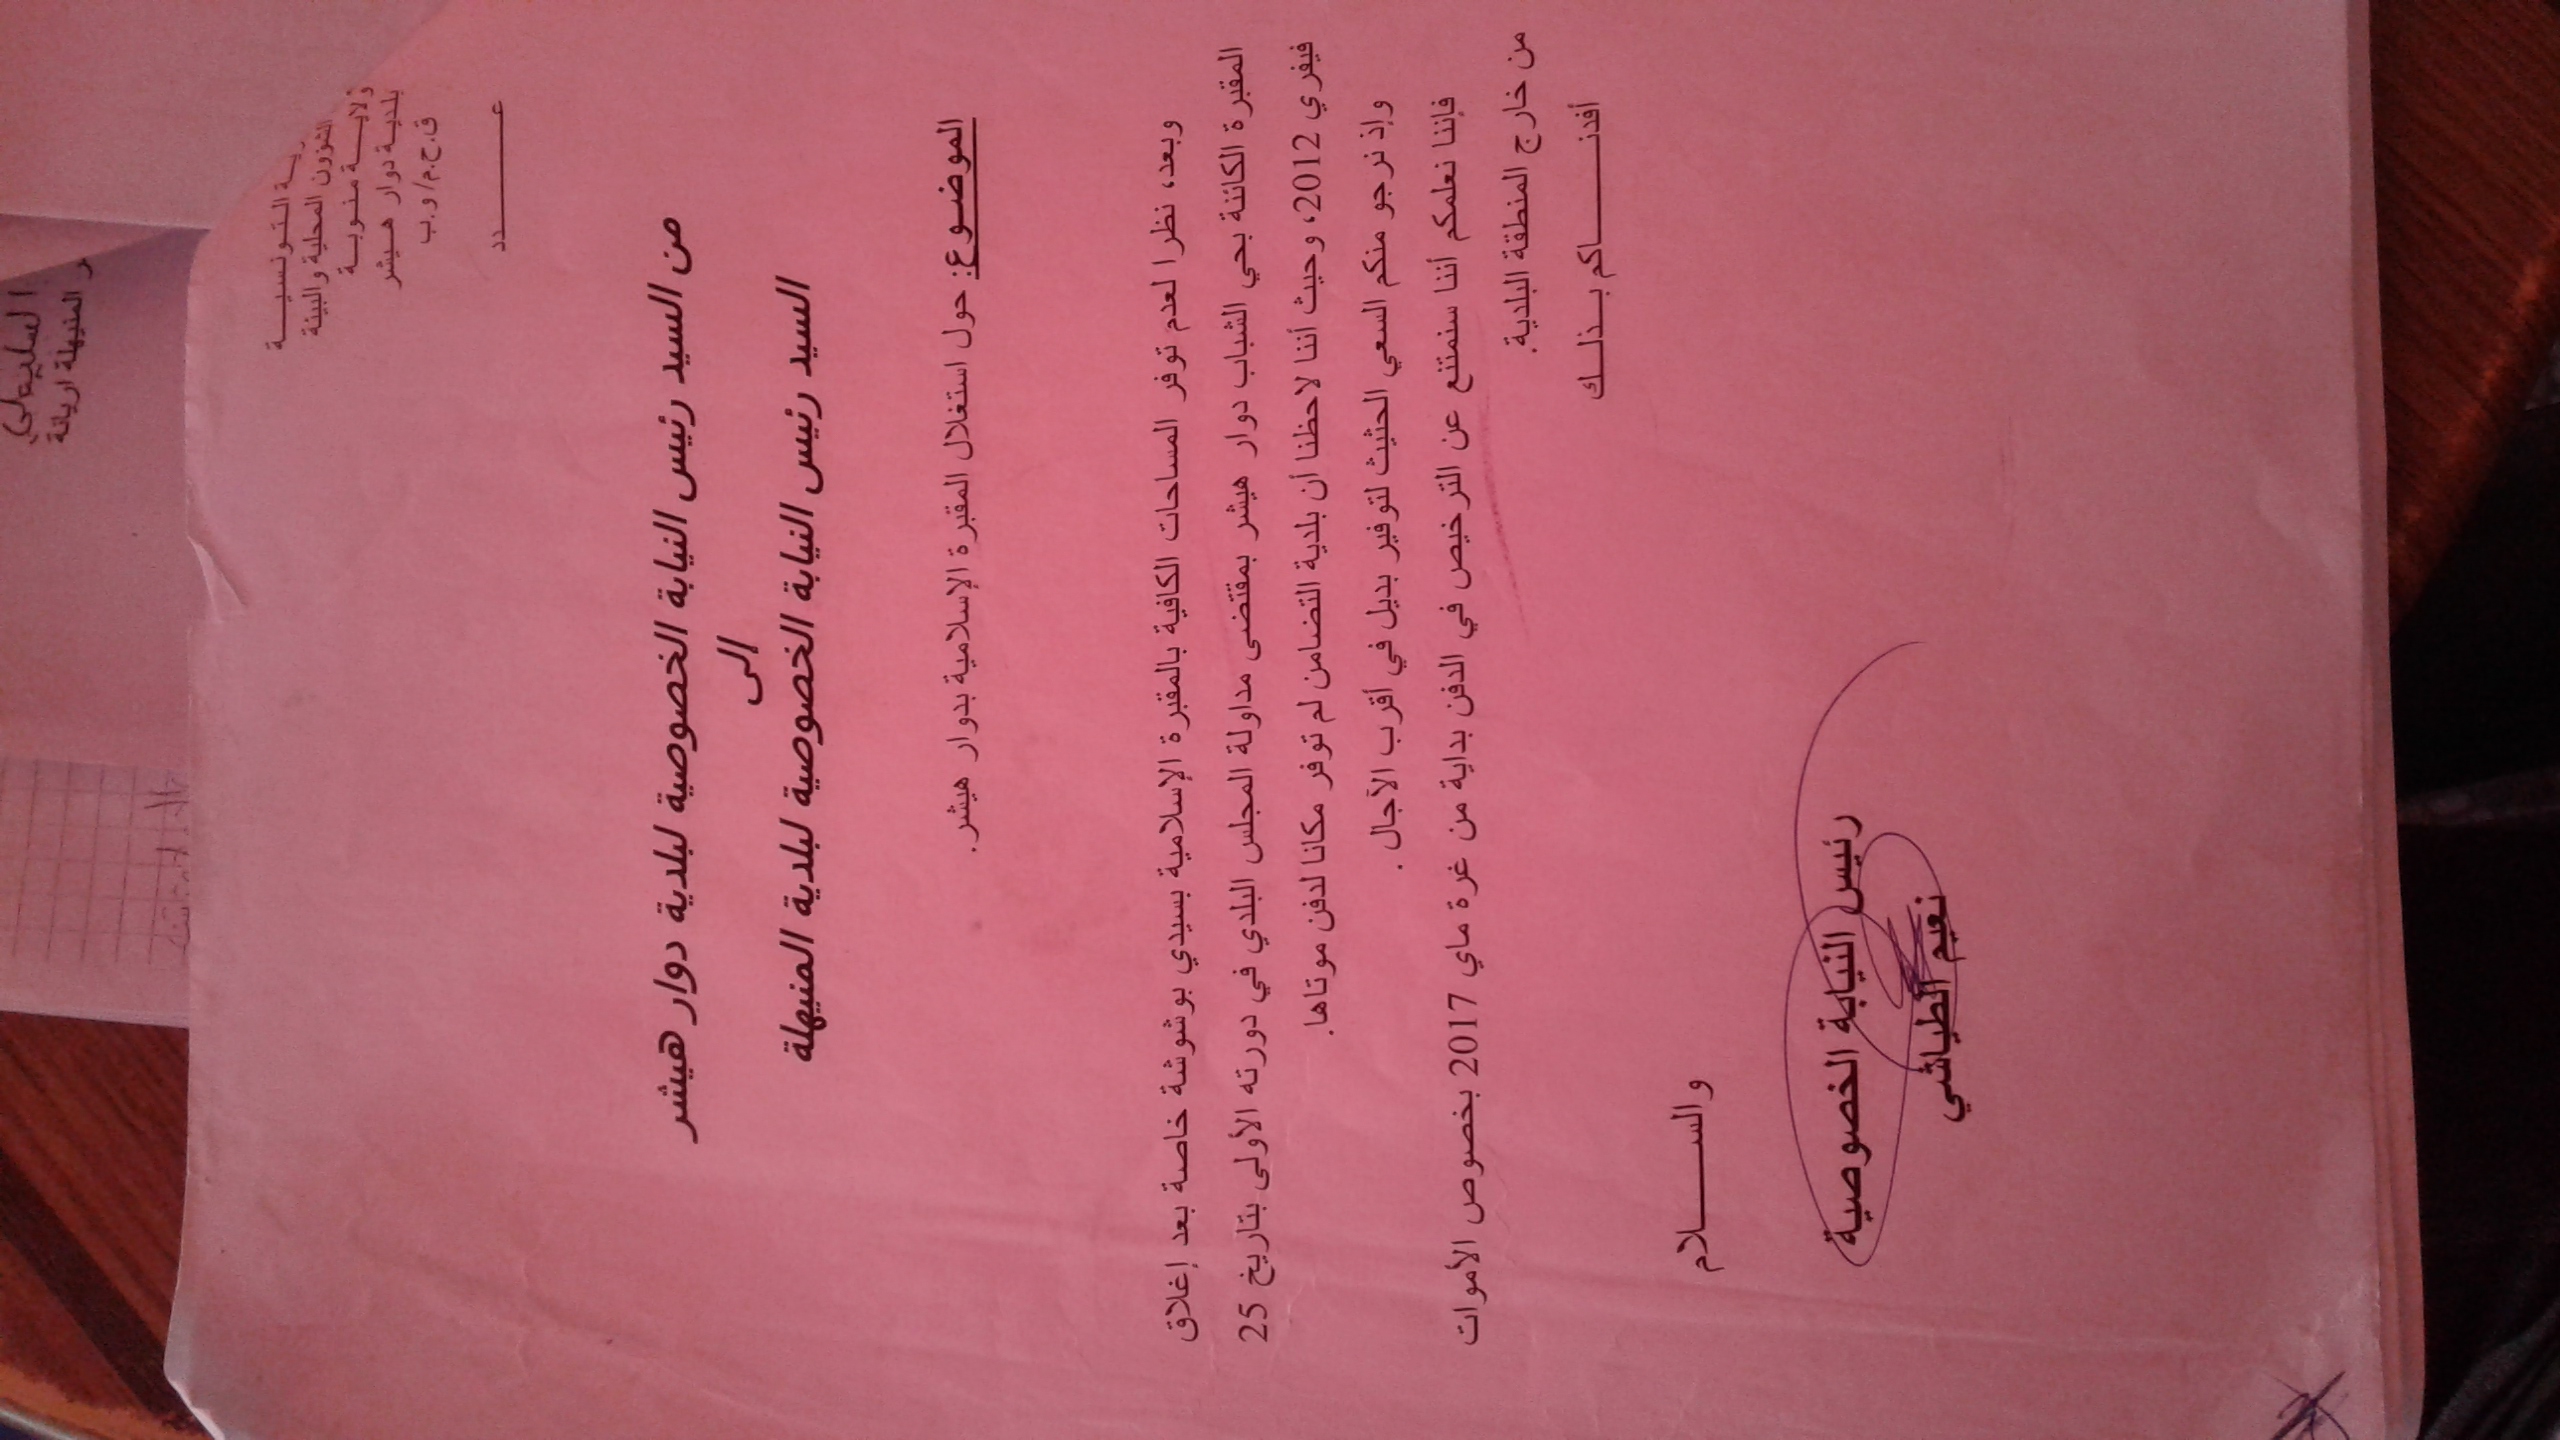 التونسيـــة
الشؤون المحلية والبيئة
ولايـــة منوبـة
بلديـة دوار هـيشر
ق.ح.م/ و.ب
عـــــــــدد
من السيد رئيس النيابة الخصوصية لبلدية دوار هيشر
الى
السيد رئيس النيابة الخصوصية لبلدية المنيهلة
الموضوع: حول استغلال المقبرة الإسلامية بدوار هيشر.
وبعد، نظرا لعدم توفر المساحات الكافية بالمقبرة الإسلامية بسيدي بوشوشة خاصة بعد إغلاق
المقبرة الكائنة بحي الشباب دوار هيشر بمقتضى مداولة المجلس البلدي في دورته الأولى بتاريخ 25
فيفري 2012، وحيث أننا لاحظنا أن بلدية التضامن لم توفر مكانا لدفن موتاها.
وإذ نرجو منكم السعي الحثيث لتوفير بديل في أقرب الآجال .
فإننا نعلمكم أننا سنمتنع عن الترخيص في الدفن بداية من غرة ماي 2017 بخصوص الأموات
من خارج المنطقة البلدية.
أفدنـــــــاكم بـذلـك
والســــــلام
رئيس النيابة الخصوصية
نعيم الطياشي
المنيهلة اريانة